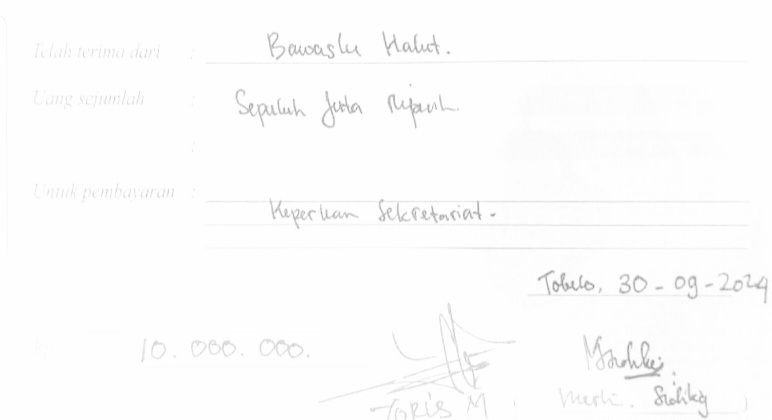 Telah terima dari : Bawaslu Halut.
Uang sejumlah : Sepuluh Juta Rupiah.
:
Untuk pembayaran :
Keperluan Sekretariat.
Tobelo, 30-09-2024
10.000.000.
TORIS M.
Merli.